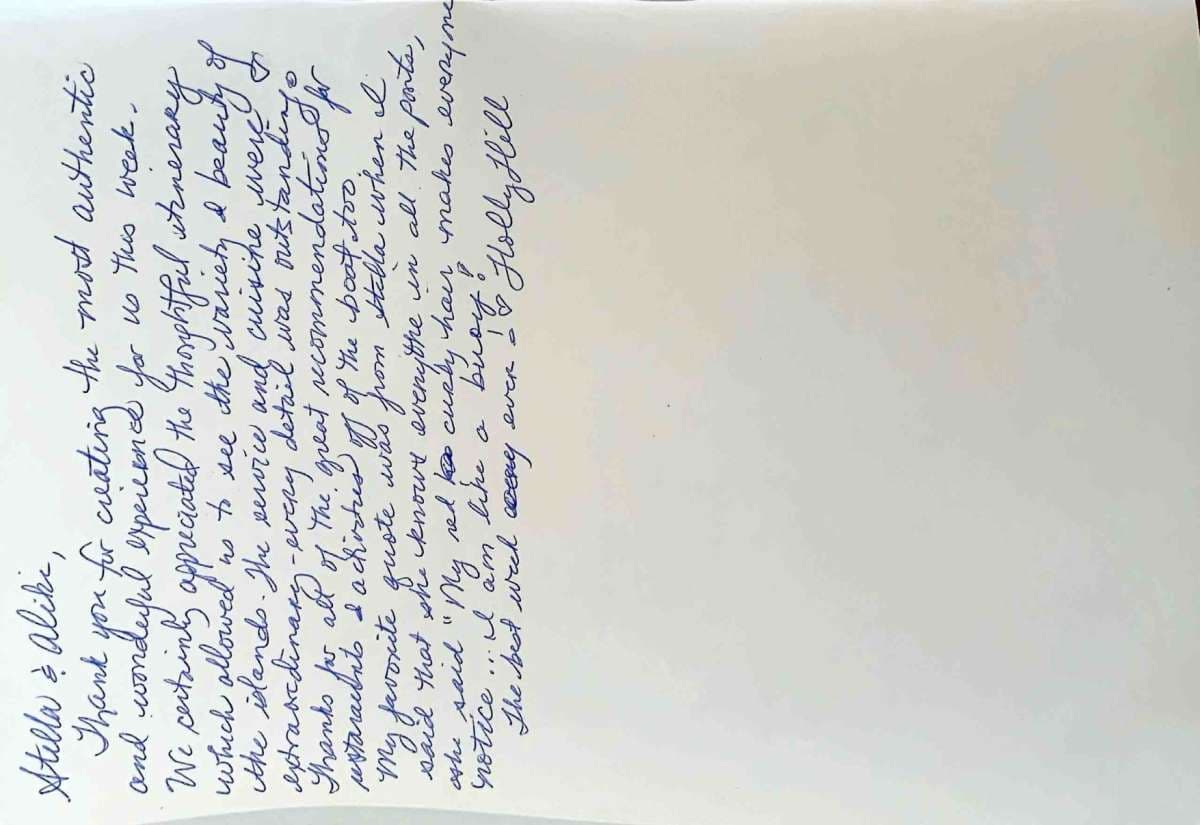 Stella & Aliki,
Thank you for creating the most authentic
and wonderful experience for us this week.
We certainly appreciated the thoughtful itinerary
which allowed us to see the variety & beauty of
the islands. The service and cuisine were
extraordinary - every detail was outstanding.
Thanks for all of the great recommendations for
restaraunts & activities off of the boat too.
My favorite quote was from Stella when I
said that she knows everyone in all the ports,
she said "My red curly hair makes everyone
notice... I am like a buoy!"
The best week ever! ♡ Holly Hill